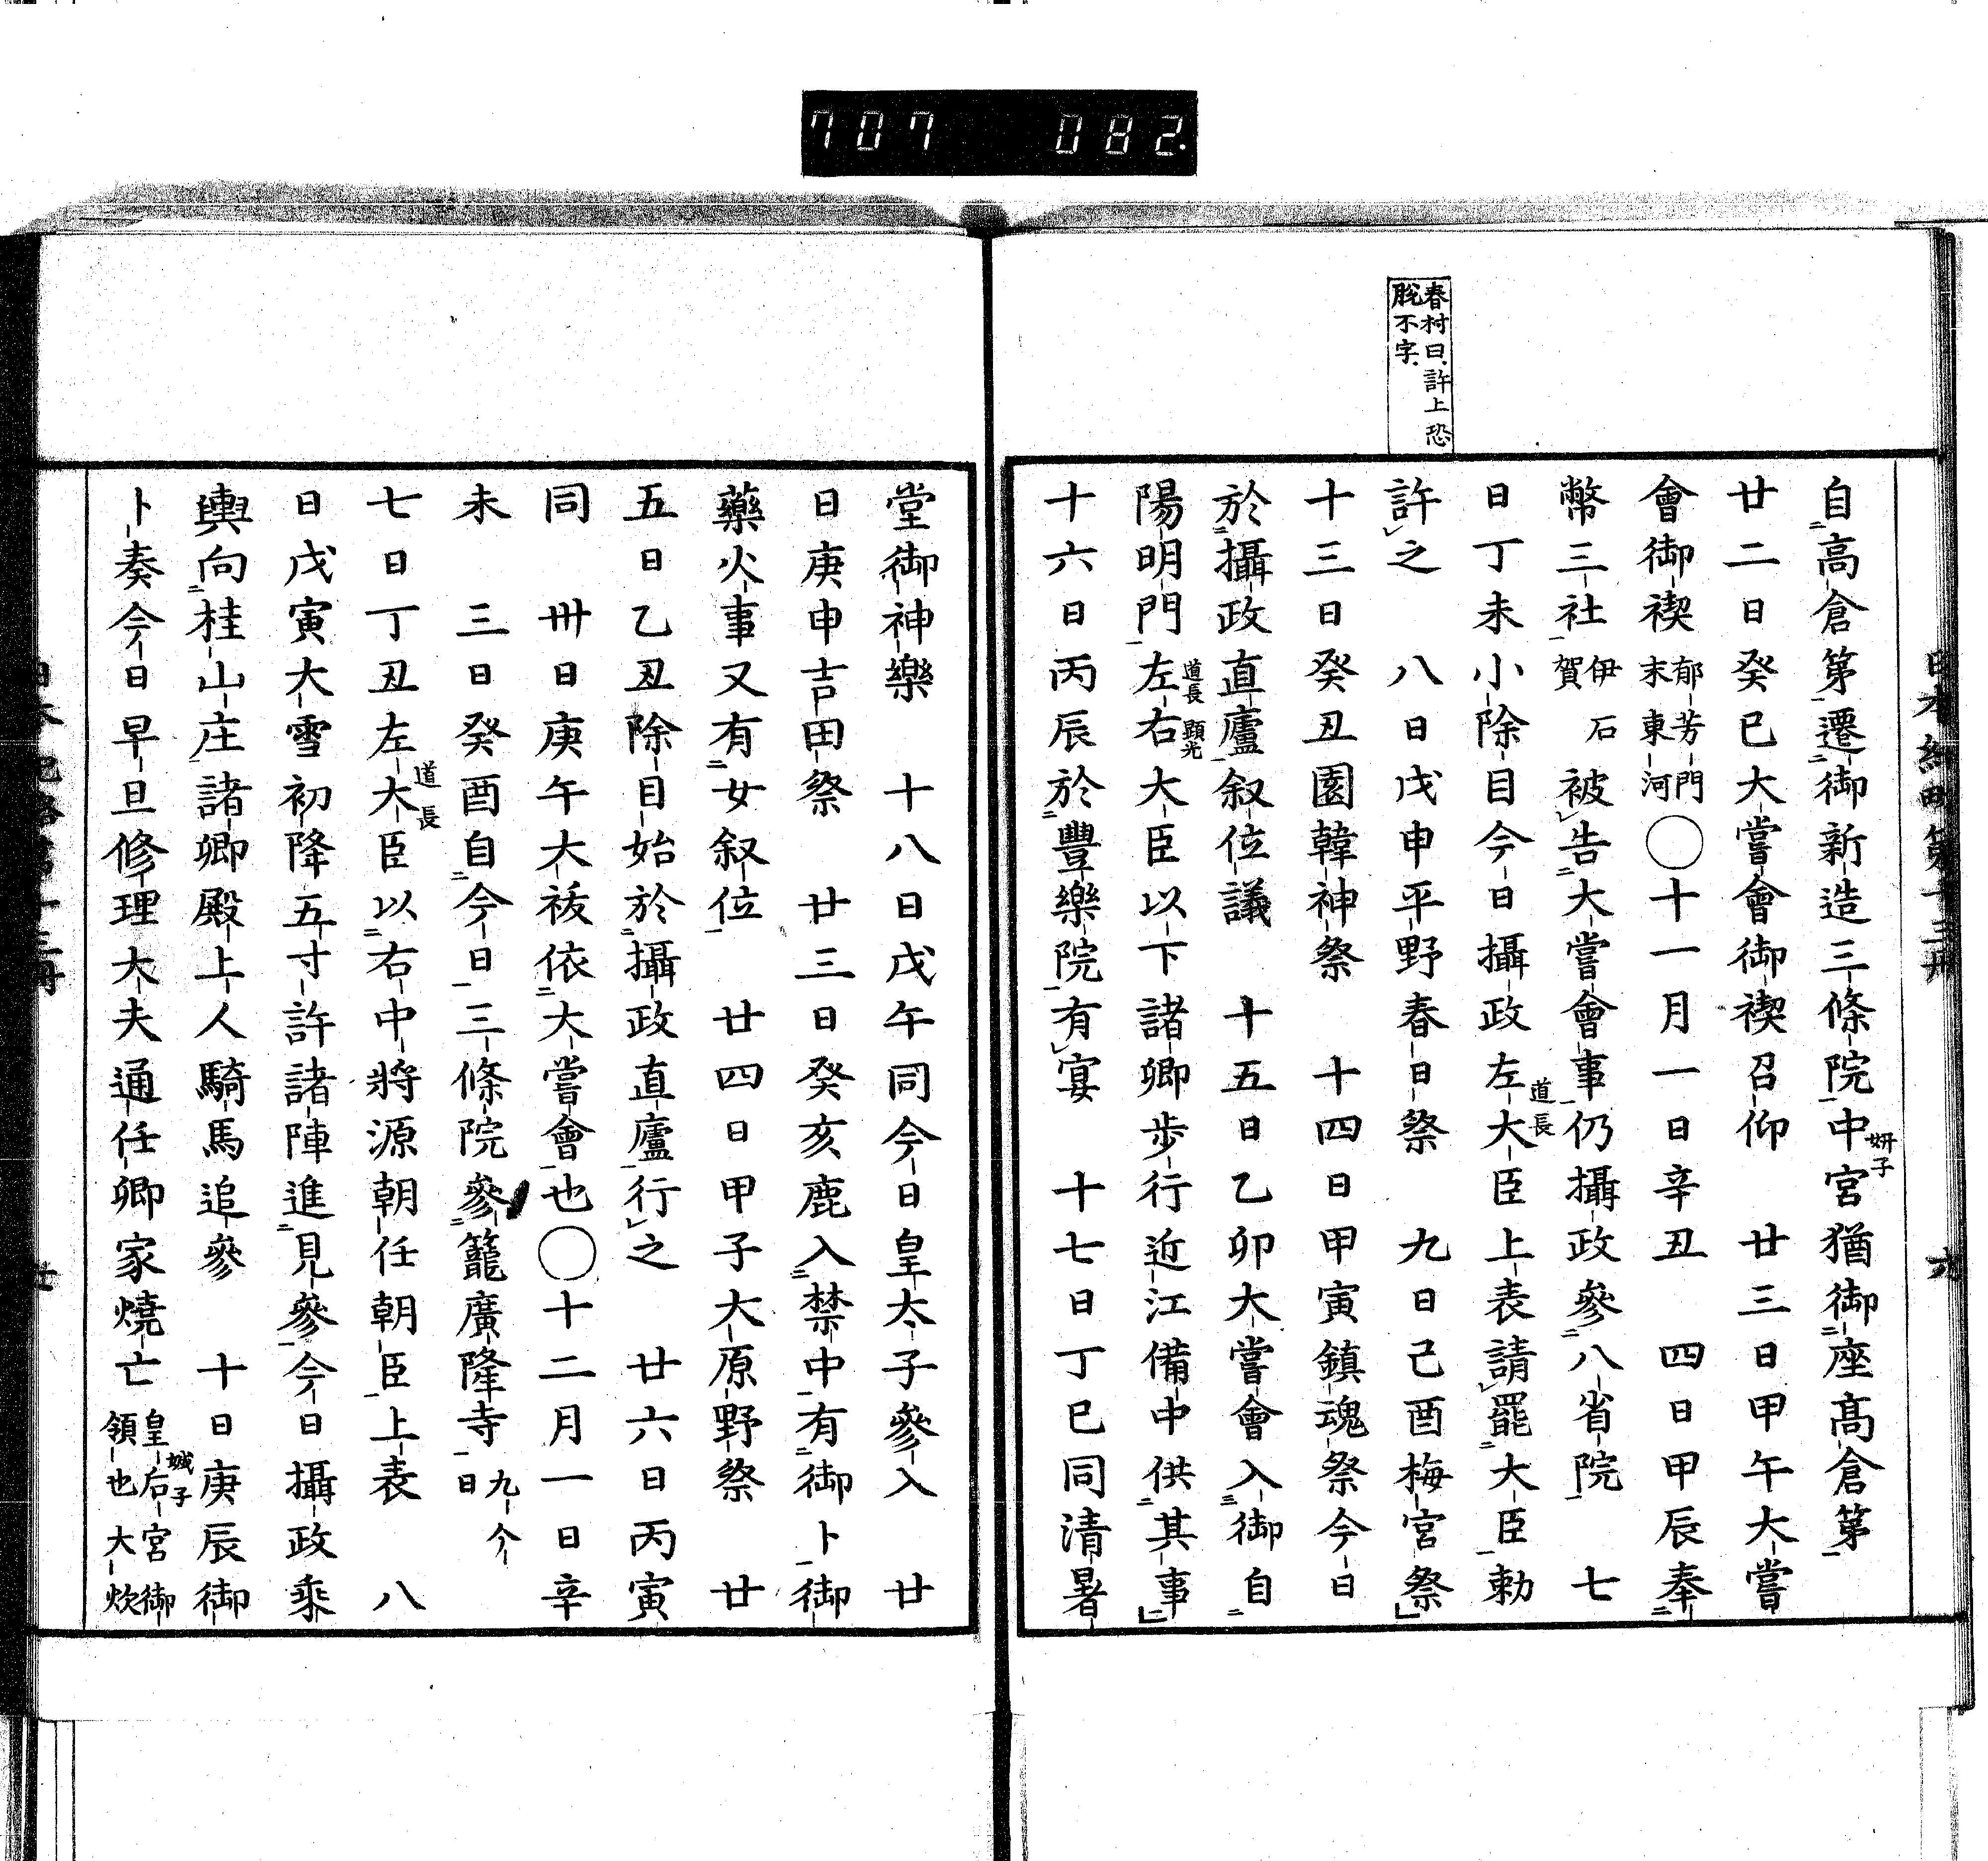 707 082.
春村曰許上恐
脱不字
自高倉第遷御新造三條院中宮猶御座高倉第
妍子
廿二日癸巳大嘗會御禊召仰　廿三日甲午大嘗
會御禊郁芳門末東河○十一月一日辛丑　四日甲辰奉
幣三社伊石賀被告大嘗會事仍攝政參八省院　七
日丁未小除目今日攝政左大臣上表請罷大臣勅
道長
許之　八日戊申平野春日祭　九日己酉梅宮祭
十三日癸丑園韓神祭　十四日甲寅鎮魂祭今日
於攝政直廬叙位議　十五日乙卯大嘗會入御自
陽明門左右大臣以下諸卿步行近江備中供其事
道長 顯光
十六日丙辰於豐樂院有宴　十七日丁巳同清暑
堂御神樂　十八日戊午同今日皇太子參入　廿
日庚申吉田祭　廿三日癸亥鹿入禁中有御卜御
藥火事又有女叙位　廿四日甲子大原野祭　廿
五日乙丑除目始於攝政直廬行之　廿六日丙寅
同　卅日庚午大祓依大嘗會也○十二月一日辛
未　三日癸酉自今日三條院參籠廣隆寺九今日
七日丁丑左大臣以右中將源朝任朝臣上表　八
道長
日戊寅大雪初降五寸許諸陣進見參今日攝政乘
輿向桂山庄諸卿殿上人騎馬追參　十日庚辰御
卜奏今日早旦修理大夫通任卿家燒亡皇后宮御領也大炊
娍子